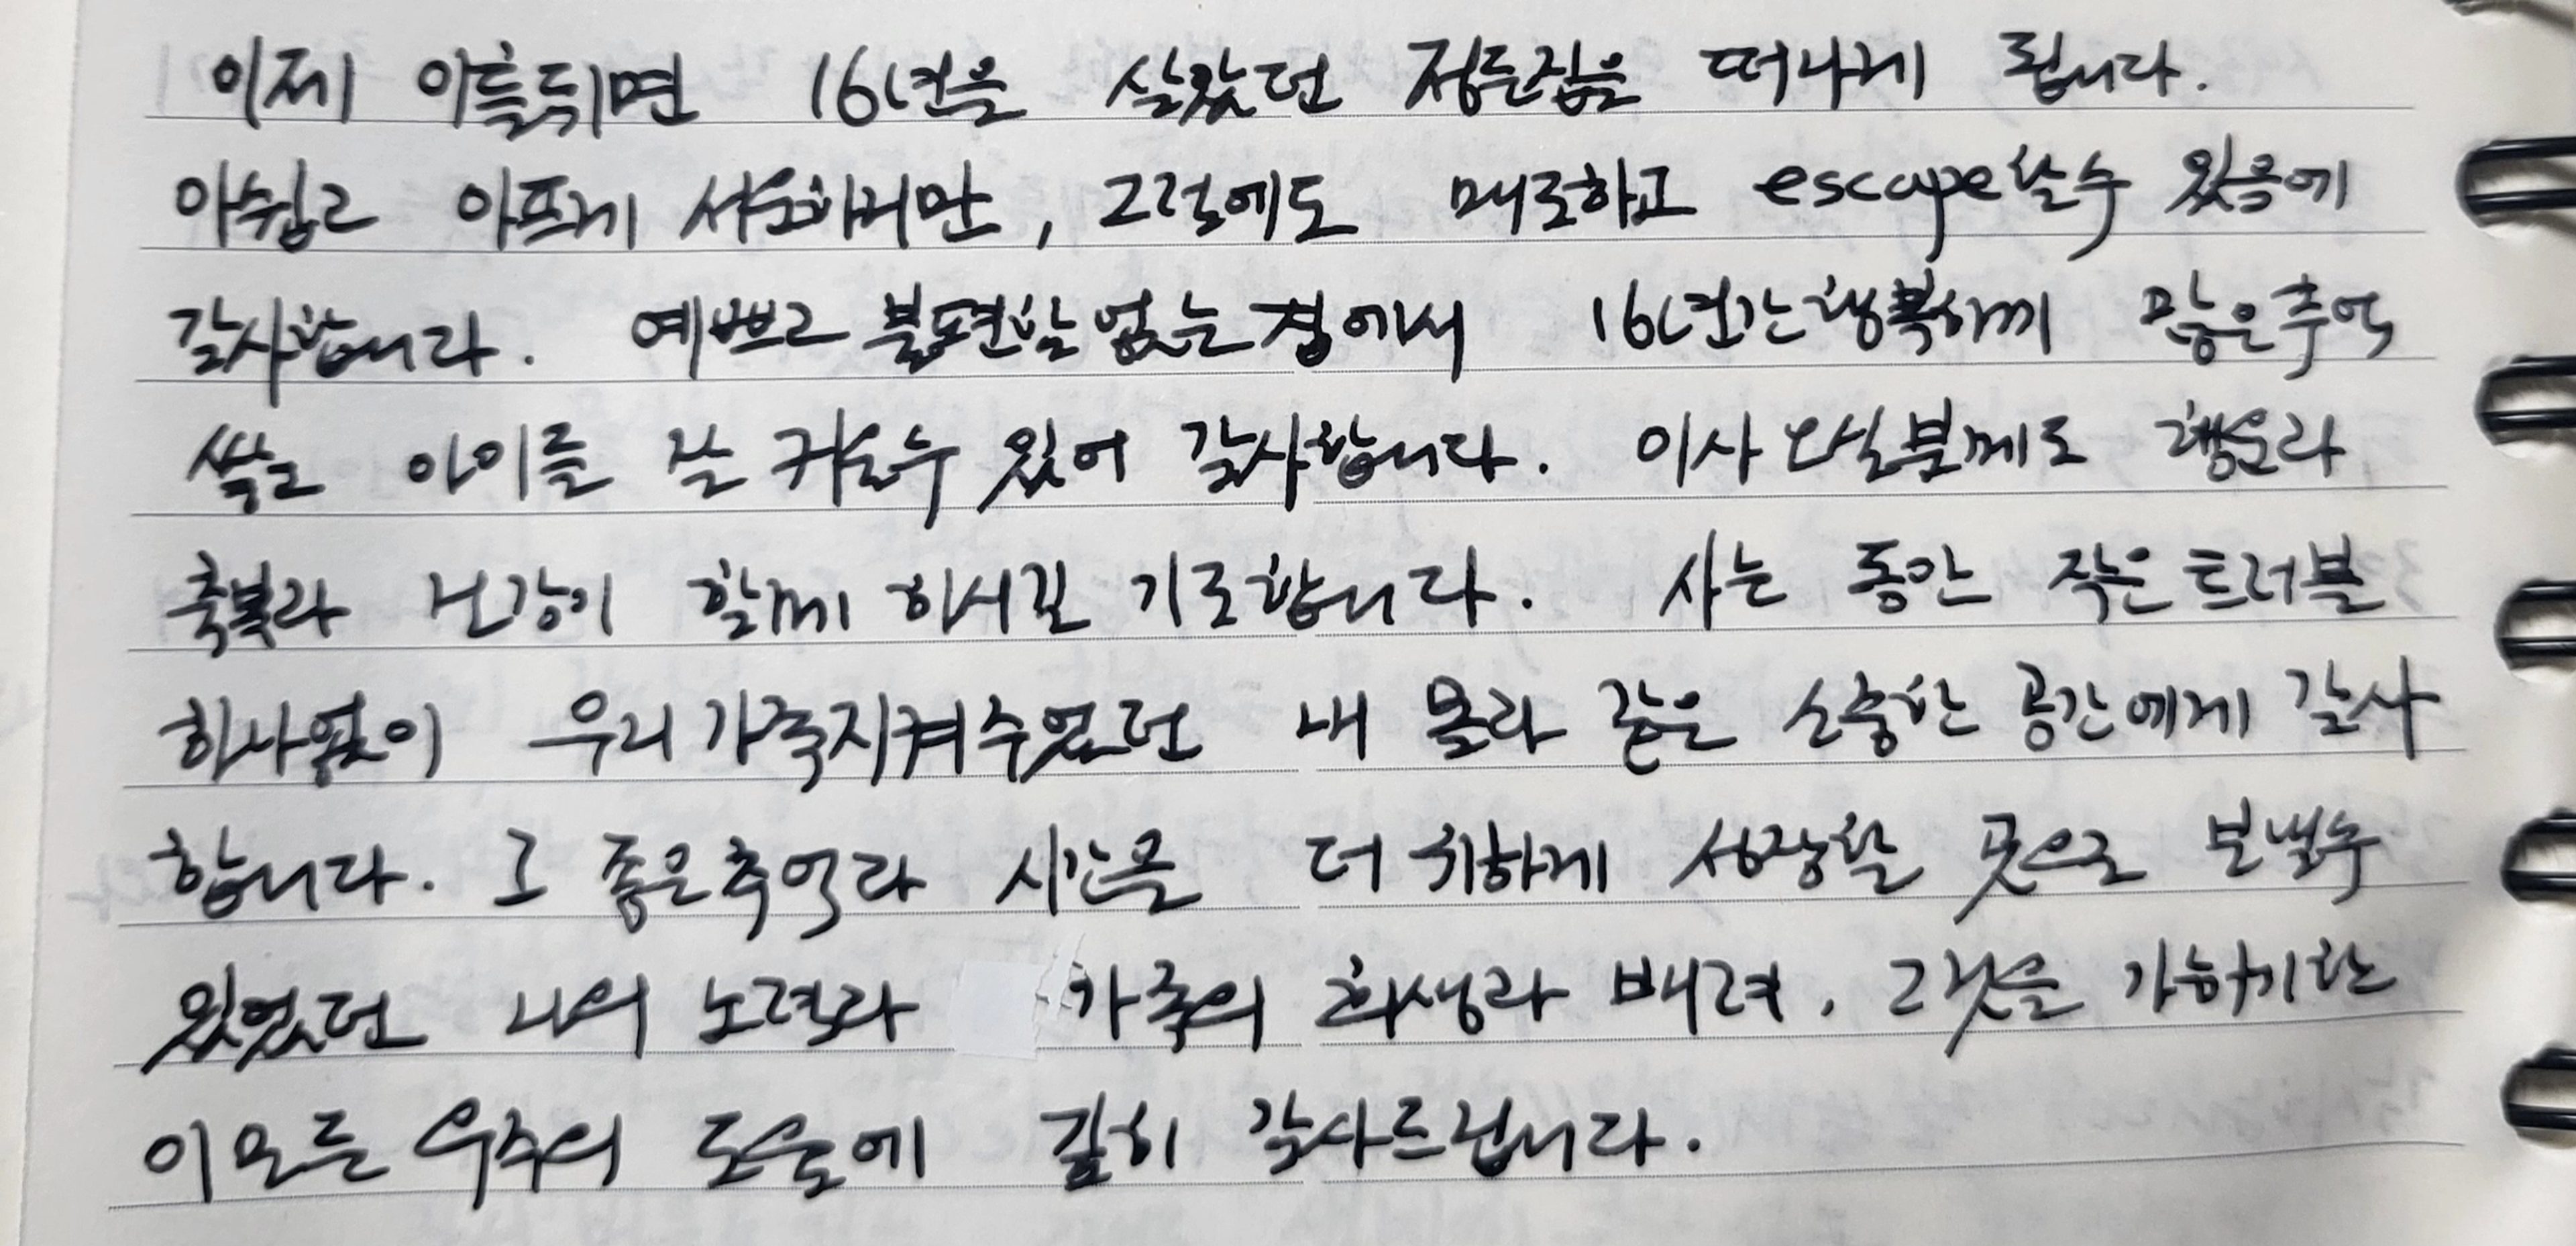 이제 이틀뒤면 16년을 살았던 정든집을 떠나게 됩니다.
아쉽고 아프게 서운하지만, 그럼에도 매도하고 escape할수 있음에
감사합니다. 예쁘고 불편함 없는 집에서 16년간 행복하게 많은추억
쌓고 아이를 잘 키울수 있어 감사합니다. 이사 오실분께도 행운과
축복과 건강이 함께 하시길 기도합니다. 사는 동안 작은트러블
하나없이 우리가족지켜주었던 내 몸과 같은 소중한 공간에게 감사
합니다. 그 좋은추억과 시간을 더 귀하게 성장할 곳으로 보낼수
있었던 나의 노력과 가족의 희생과 배려, 그것을 가능하게한
이모든 우주의 도움에 깊히 감사드립니다.